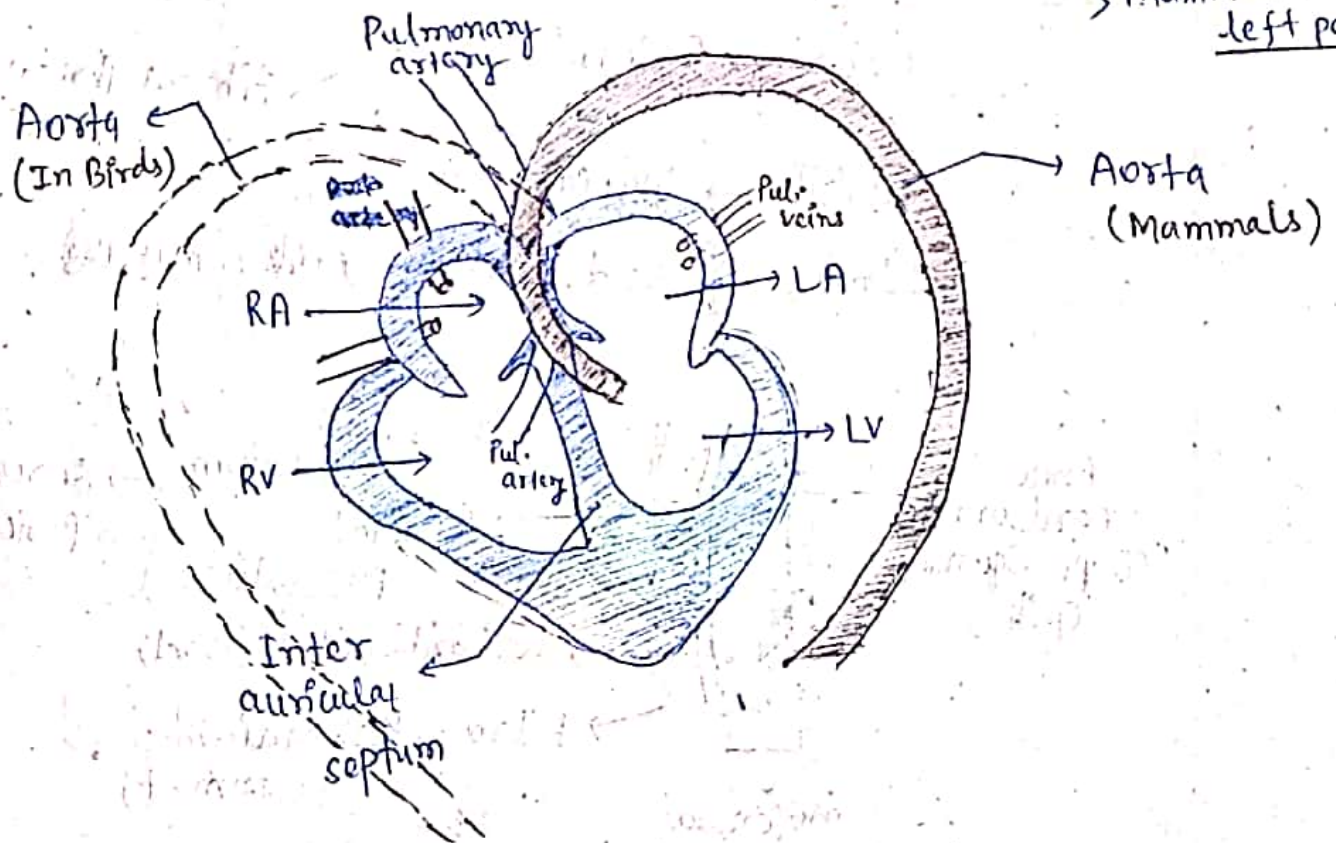 left
Pulmonary
artary
Aorta
(In Birds)
Aorta
(Mammals)
Pul.
veins
RA
LA
RV
LV
Pul.
artery
Inter
auricular
septum